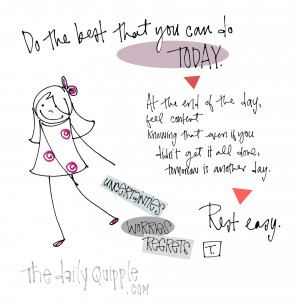 Do the best that you can do
TODAY.
At the end of the day,
feel content
knowing that even if you
didn't get it all done,
tomorrow is another day.
Rest easy.
UNCERTAINTIES
WORRIES
REGRETS
T
the daily quipple
.com